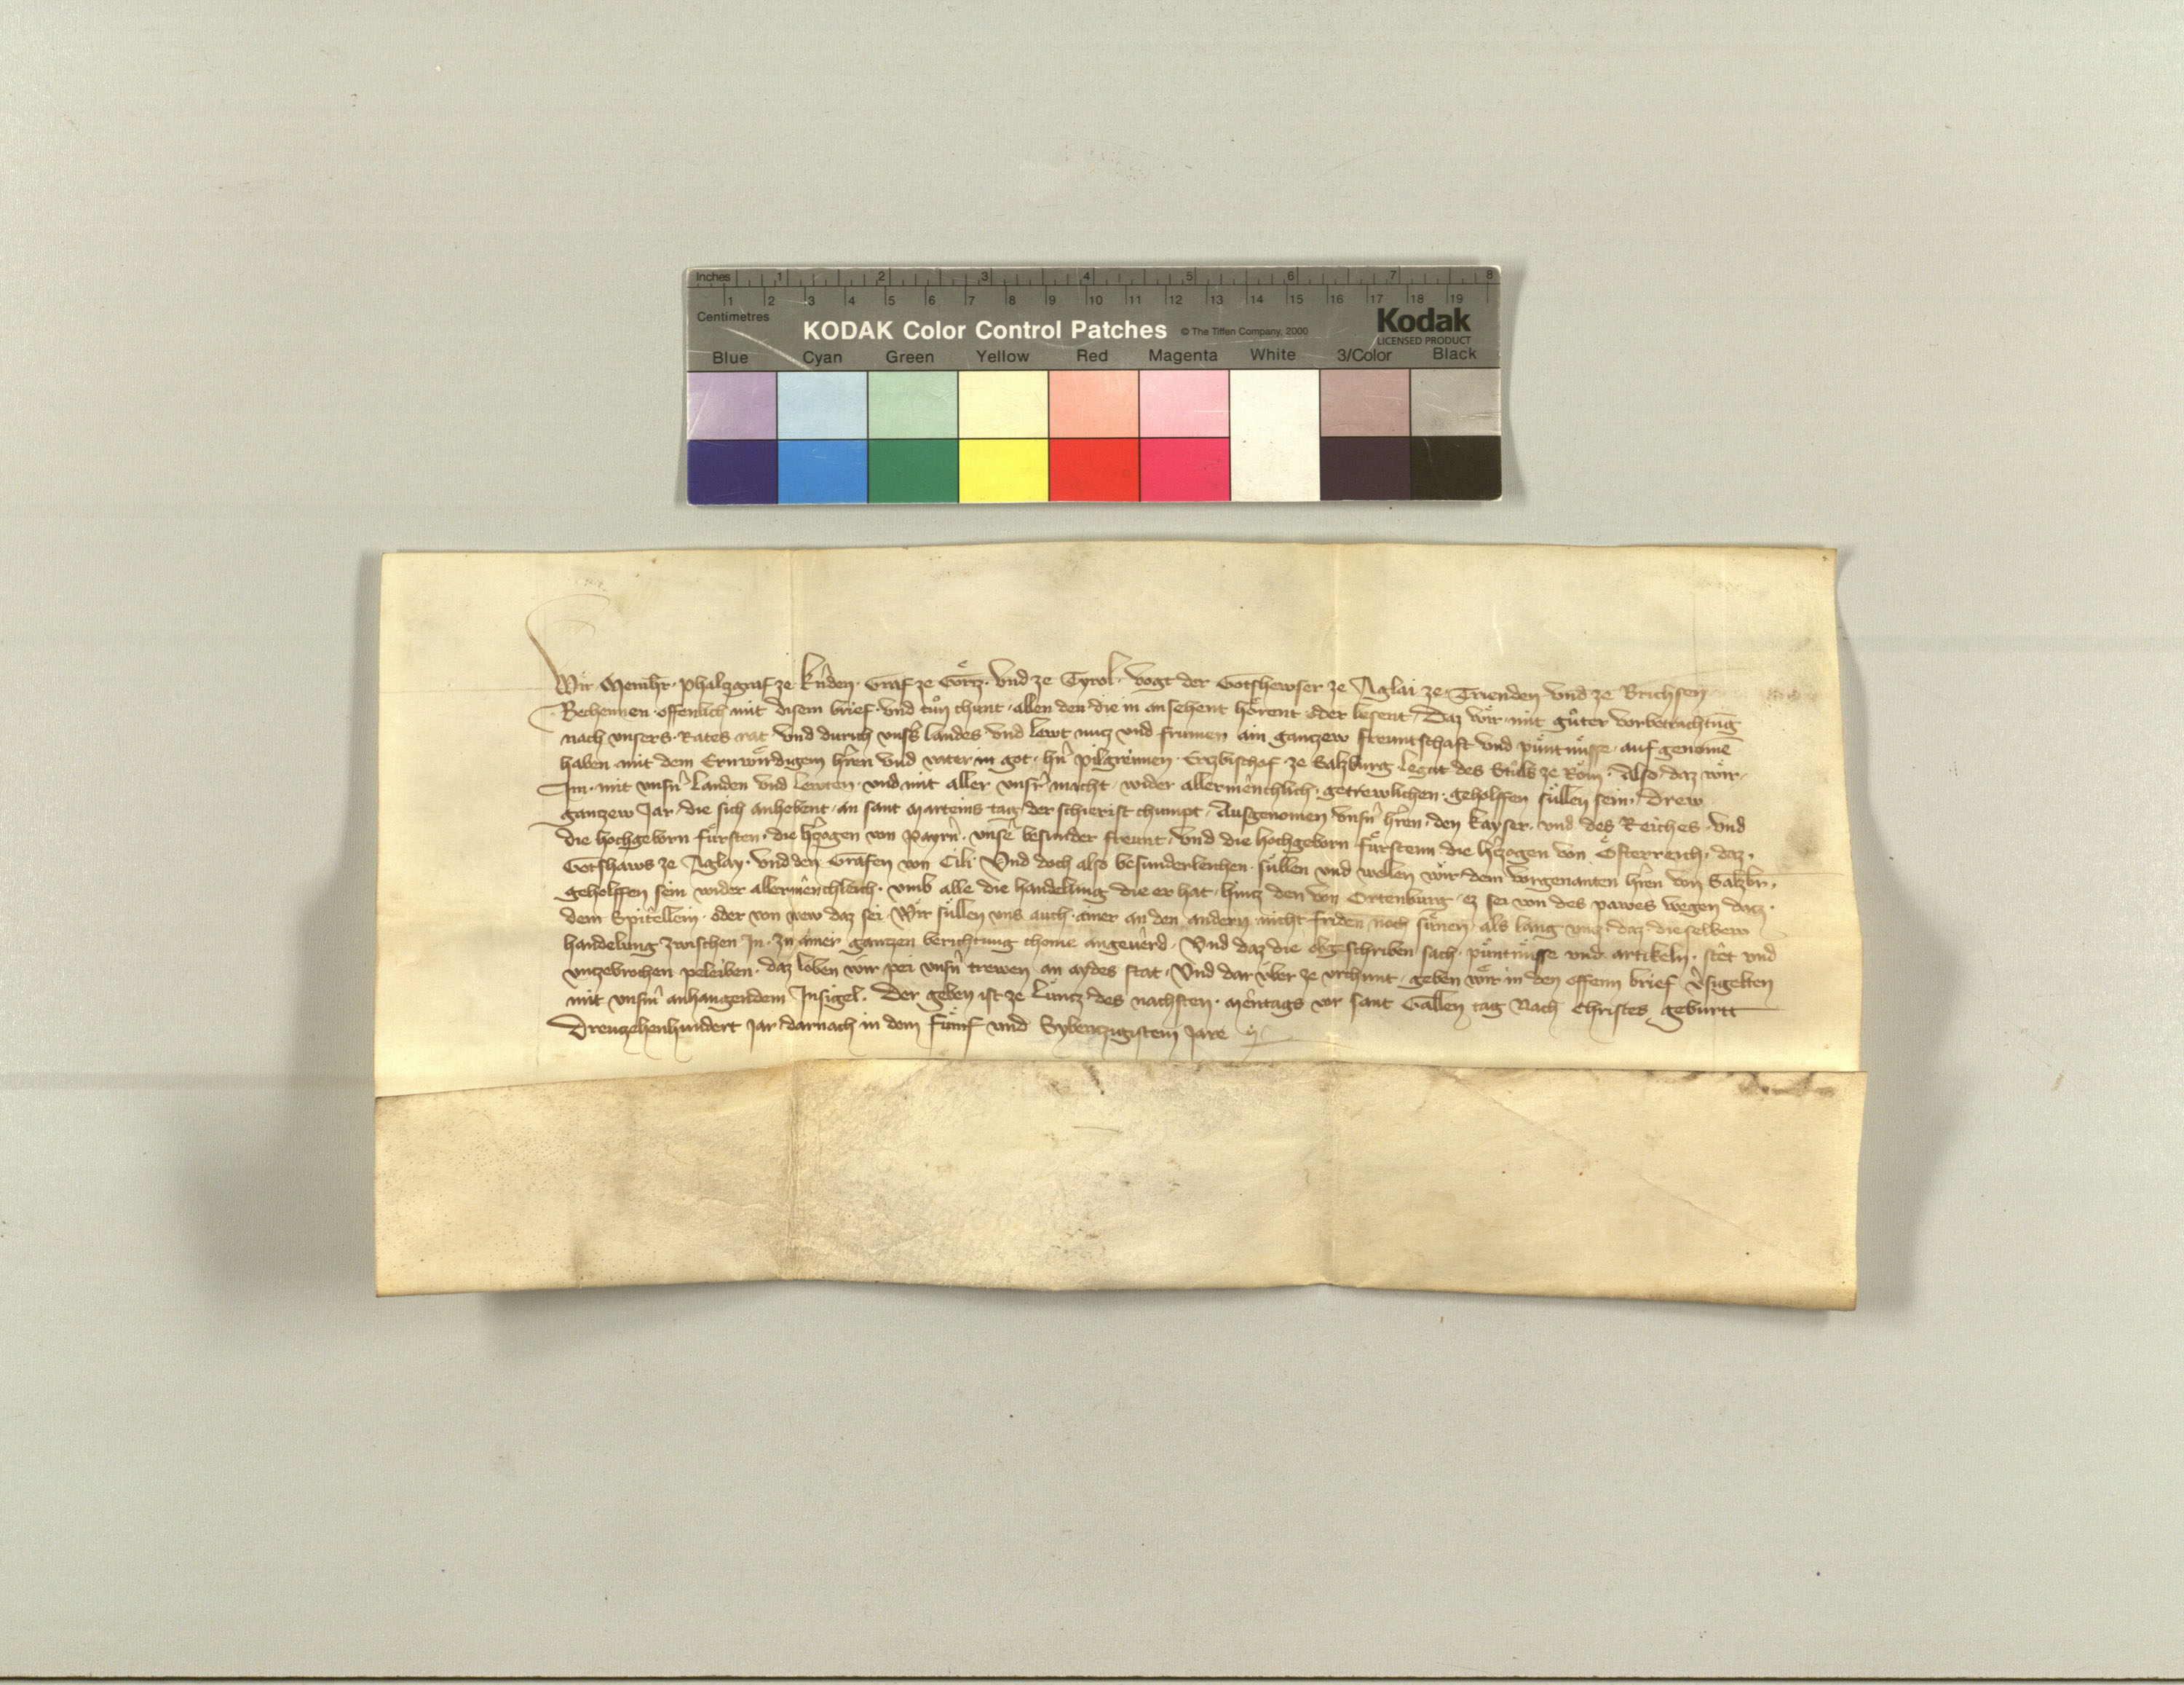 Inches 1 2 3 4 5 6 7 8
1 2 3 4 5 6 7 8 9 10 11 12 13 14 15 16 17 18 19
Centimetres
KODAK Color Control Patches © The Tiffen Company, 2000 Kodak
LICENSED PRODUCT
Blue Cyan Green Yellow Red Magenta White 3/Color Black
Wir Meinhr. phalzgraf ze kernden. Graf ze Görtz. vnd ze Tyrol. vogt der Gotshewser ze Aglai ze Trienden vnd ze Brichsen
Bechennen offenlich mit disem brief. vnd tůn chunt allen den die in an sehent hörent oder lesent, Daz wir mit gůter vorbetrachtūg
nach vnsers Rates rat vnd durich vnsr landes vnd lewt nutz vnd frumen ain gantzew freuntschaft vnd püntnüsse auf genomē
haben mit dem Erwirdigem hren vnd vater in got. hrn pilgreimen Ertzbischof ze Salzburg legat des Stůls ze Röm. Also daz wir
Im. mit vnsrn landen vnd lewten. vnd mit aller vnsr macht wider allermenchlich. getrewlichen geholffen süllen sein. Drew
gantzew Jar die sich anhebent an sant marteins tag der schierist chumpt, Ausgenomen vnsrn hren den kayser. vnd des Reiches vnd
die hochgeborn fürsten. die hrzogen von Payrn. vnser besunder freunt, vnd die hochgeborn fürstenn die hrzogen von Österreich. daz
Gotshaws ze Aglay. vnd den Grafen von Cili. Vnd doch also besunderleichen süllen vnd wellen wir dem vorgenanten hren von Salzbr.
geholffen sein wider allermenchleich. vmb alle die handelung die er hat hintz den von Ortenburg ez sei von des pawes wegen datz
dem Spitellein. oder von wew daz sei. Wir süllen vns auch ainer an den andern nicht friden noch sünen als lang vntz daz dieselbew
handelung zwischen In. zu ainer gantzen berichtung chome angeuerd. Vnd daz die obgeschriben sach püntnüsse vnd artikeln. stet vnd
vntzebrochen peleiben. daz loben wir pei vnsrn trewen an aydes stat, Vnd dar über ze vrchunt, geben wir in den offenn brief v̄sigelten
mit vnsrm anhangendem Insigel. Der geben ist ze Lüntz des nachsten mentags vor sant Gallen tag Nach Christes geburtt
Dreutzehenhundert Jar darnach in dem fümf vnd Sybentzigistem Jare